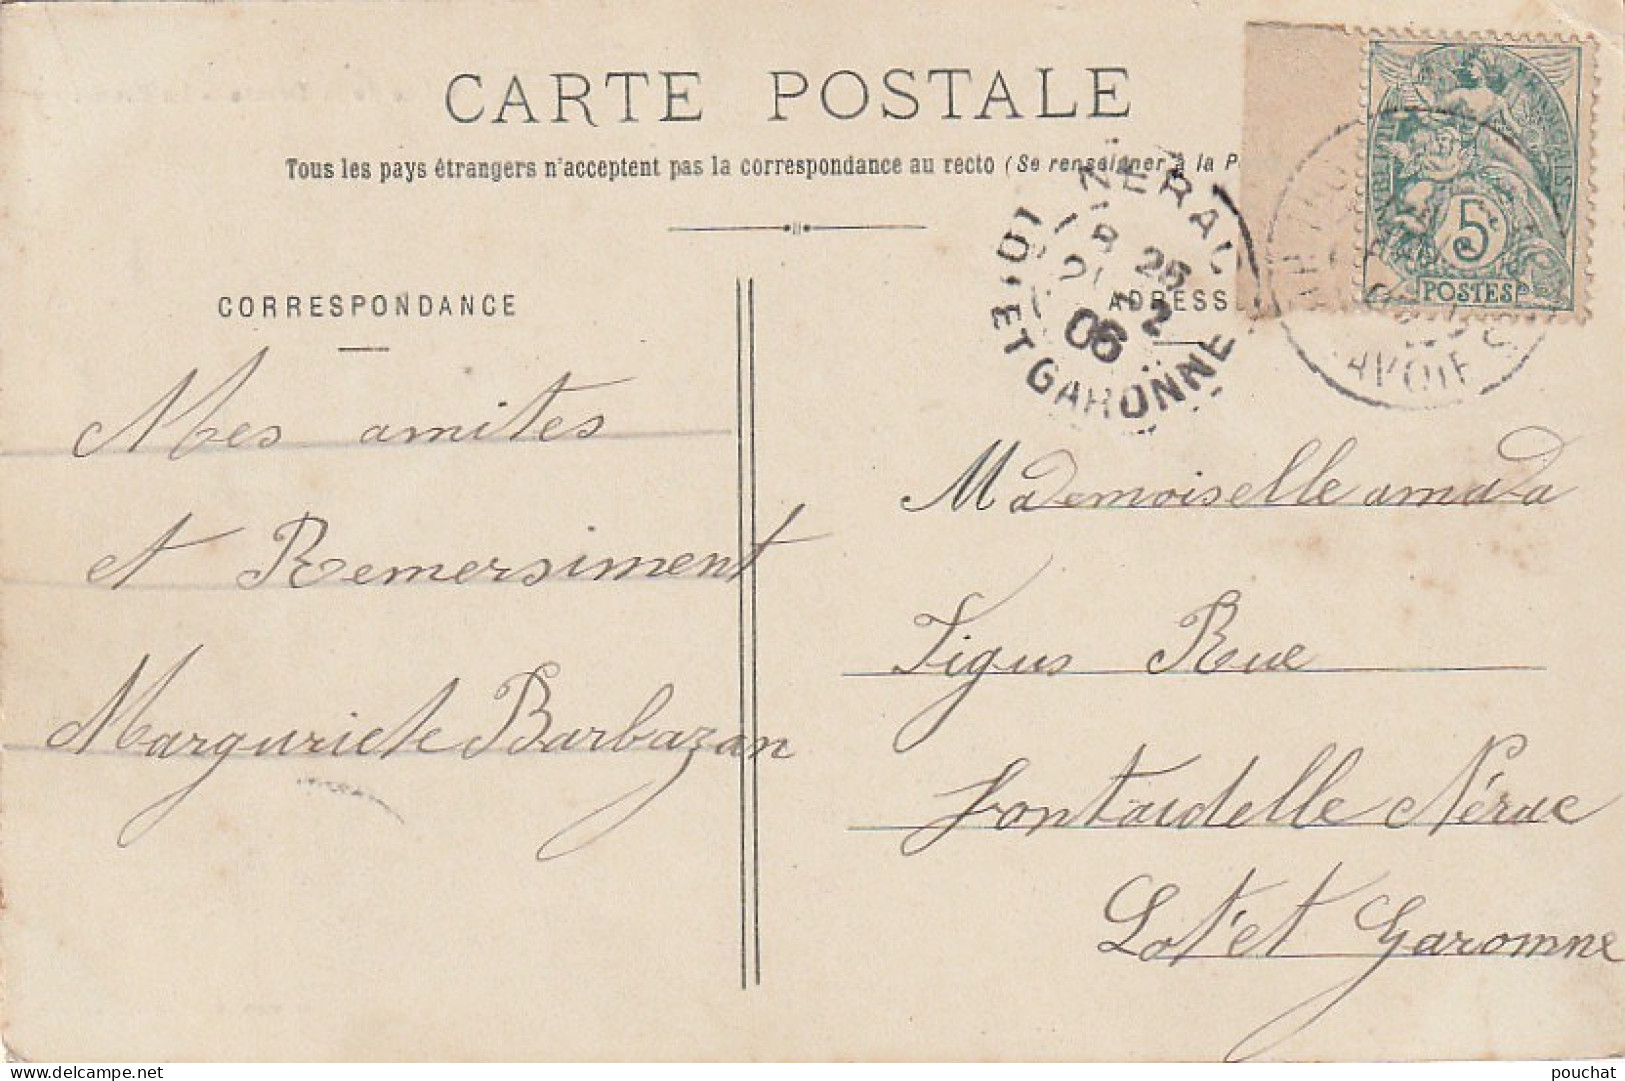 CARTE POSTALE
Tous les pays étrangers n'acceptent pas la correspondance au recto (Se renseigner à la P
CORRESPONDANCE
ADRESS
Mes amites
et Remersiment
Marguriete Barbazan
Mademoiselle amada
Figus Rue
Fontaidelle Nérac
Lot et Garonne
NERAC
25
2
06
LOT ET GARONNE
FRANÇAISE
5c
POSTES
AVOIE
pouchat